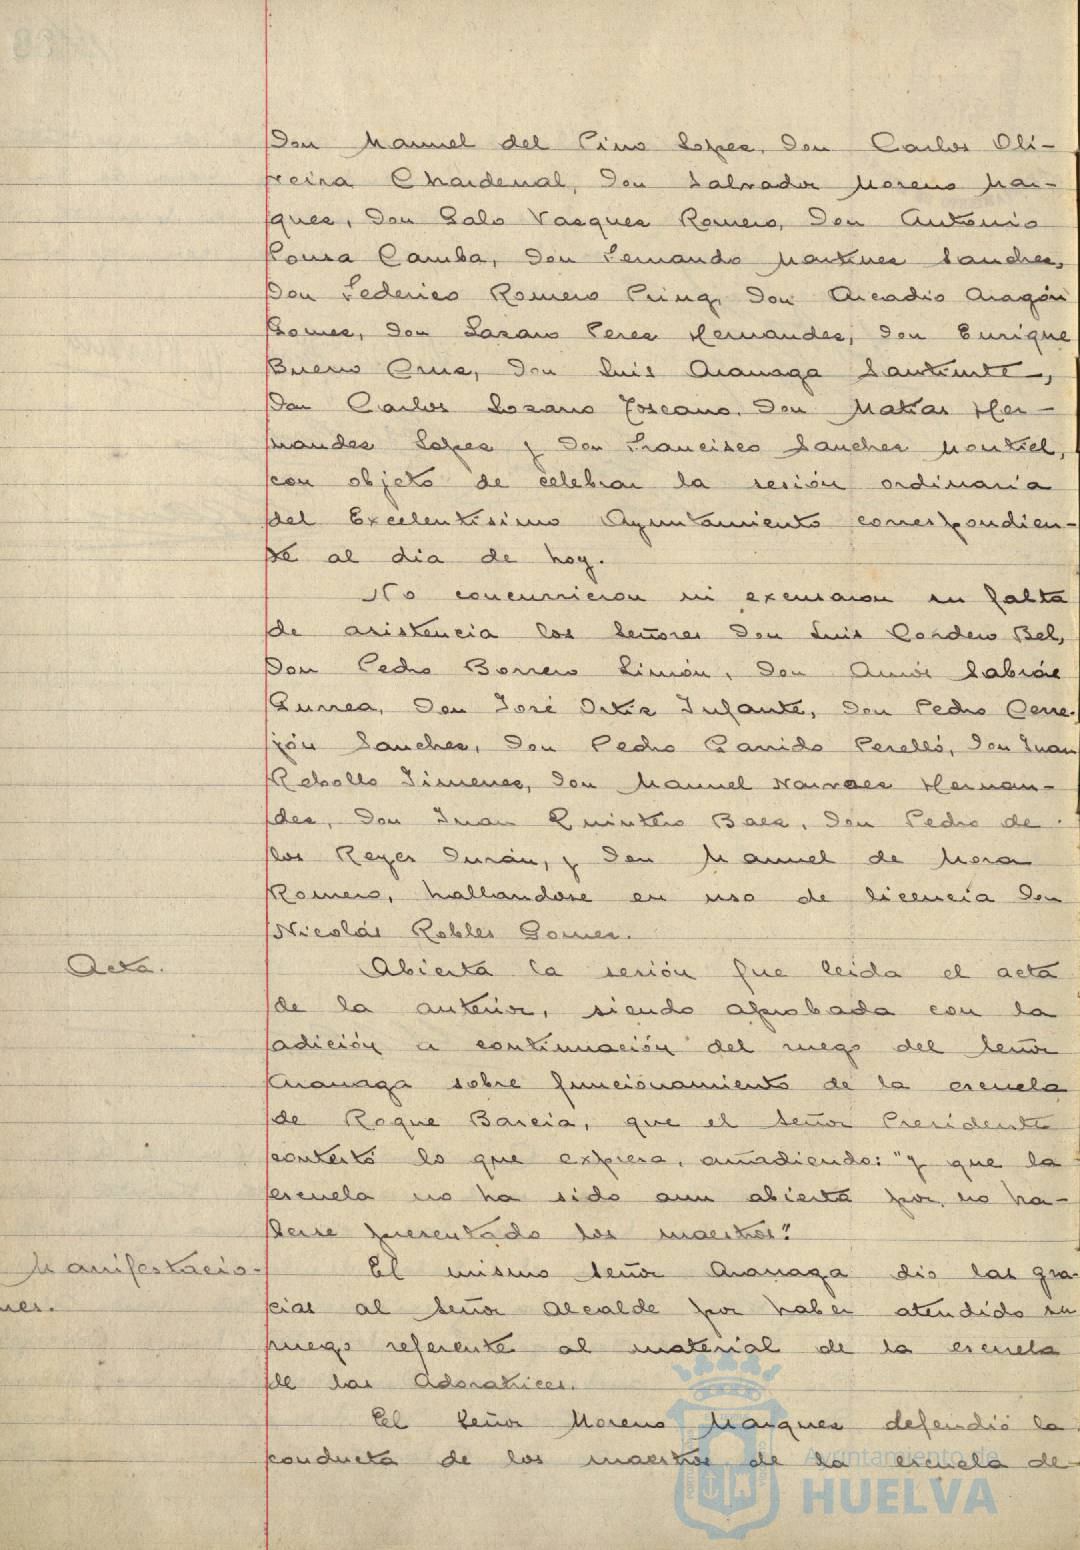 Don Manuel del Pino Lopez, Don Carlos Oli-
veira Chardenal, Don Salvador Moreno Mar-
quez, Don Galo Vazquez Romero, Don Antonio
Pousa Camba, Don Fernando Martinez Sanchez,
Don Federico Romero Pring, Don Arcadio Aragón
Gomez, Don Lazaro Perez Hernandez, Don Enrique
Bueno Cruz, Don Luis Aranaga Santiuste,
Don Carlos Lozano Toscano, Don Matias Her-
nandez Lopez y Don Francisco Sanchez Montiel,
con objeto de celebrar la sesión ordinaria
del Excelentisimo Ayuntamiento correspondien-
te al dia de hoy.
No concurrieron ni excusaron su falta
de asistencia los Señores Don Luis Cordero Bel,
Don Pedro Borrero Limón, Don Amós Sabrás
Gurrea, Don José Ortiz Infante, Don Pedro Cere-
jón Sanchez, Don Pedro Garrido Perelló, Don Juan
Rebollo Jimenez, Don Manuel Narvaez Hernan-
dez, Don Juan Quintero Baez, Don Pedro de
los Reyes Durán, y Don Manuel de Mora
Romero, hallandose en uso de licencia Don
Nicolás Robles Gomez.
Acta.
Abierta la sesión fue leida el acta
de la anterior, siendo aprobada con la
adición a continuación del ruego del Señor
Aranaga sobre funcionamiento de la escuela
de Roque Barcia, que el Señor Presidente
contestó lo que expresa, añadiendo: "y que la
escuela no ha sido aun abierta por no ha-
berse presentado los maestros".
Manifestacio-
nes.
El mismo Señor Aranaga dió las gra-
cias al Señor Alcalde por haber atendido su
ruego referente al material de la escuela
de las Adoratrices.
El Señor Moreno Marquez defendió la
conducta de los maestros de la escuela de
Ayuntamiento de
HUELVA